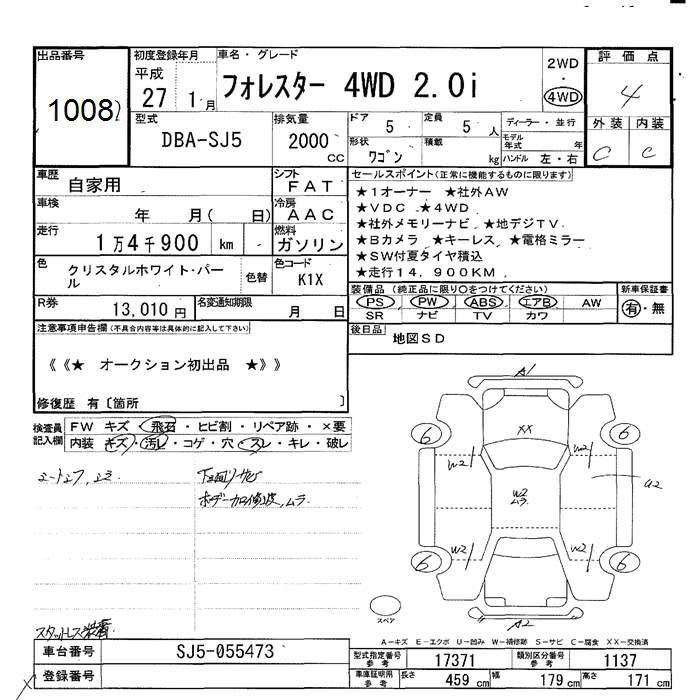 出品番号
1008
初度登録年月
平成
27 1月
車名・グレード
フォレスター 4WD 2.0i
2WD
・
4WD
評価点
4
外装 内装
C C
型式
DBA-SJ5
排気量
2000
CC
ドア 5
定員 5 人
形状 ワゴン
積載 kg
ディーラー・並行
モデル年式 年
ハンドル 左・右
車歴 自家用
シフト FAT
車検 年 月( 日)
冷房 AAC
走行 1万4千900 km
燃料 ガソリン
色 クリスタルホワイト・パール
色替
色コード K1X
R券 13,010円
名変通知期限 月 日
セールスポイント(正常に機能するものに限ります)
★1オーナー ★社外AW
★VDC ★4WD
★社外メモリーナビ ★地デジTV
★Bカメラ ★キーレス ★電格ミラー
★SW付夏タイヤ積込
★走行14,900KM
装備品(純正品に限り○をつけてください)
PS PW ABS エアB AW
SR ナビ TV カワ
新車保証書
有・無
後日品 地図SD
注意事項申告欄(不具合内容等は具体的に記入して下さい)
《《★ オークション初出品 ★》》
修復歴 有〔箇所 〕
検査員記入欄
FW キズ・飛石・ヒビ割・リペア跡・×要
内装 キズ・汚れ・コゲ・穴・スレ・キレ・破レ
下廻リサビ
ボデー加修波,ムラ
スタットレス装着
A1
XX
6 6
W2 W2
W2
ムラ
U2
W2 W2
6 6
A2
スペア
A-キズ E-エクボ U-凹み W-補修跡 S-サビ C-腐食 XX-交換済
車台番号 SJ5-055473
登録番号
型式指定番号 参考 17371
類別区分番号 参考 1137
車庫証明用 参考 長さ 459 cm 幅 179 cm 高さ 171 cm